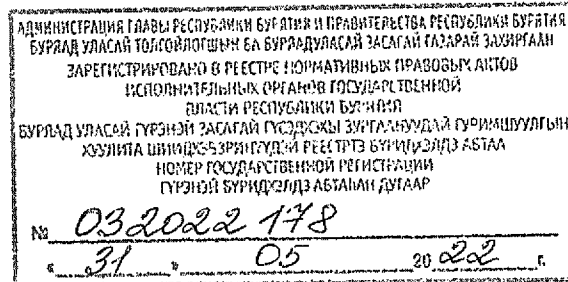 АДМИНИСТРАЦИЯ ГЛАВЫ РЕСПУБЛИКИ БУРЯТИЯ И ПРАВИТЕЛЬСТВА РЕСПУБЛИКИ БУРЯТИЯ
БУРЯАД УЛАСАЙ ТОЛГОЙЛОГШЫН БА БУРЯАД УЛАСАЙ ЗАСАГАЙ ГАЗАРАЙ ЗАХИРГААН
ЗАРЕГИСТРИРОВАНО В РЕЕСТРЕ НОРМАТИВНЫХ ПРАВОВЫХ АКТОВ
ИСПОЛНИТЕЛЬНЫХ ОРГАНОВ ГОСУДАРСТВЕННОЙ
ВЛАСТИ РЕСПУБЛИКИ БУРЯТИЯ
БУРЯАД УЛАСАЙ ГҮРЭНЭЙ ЗАСАГАЙ
НОМЕР ГОСУДАРСТВЕННОЙ РЕГИСТРАЦИИ
ГҮРЭНЭЙ БҮРИДХЭЛДЭ АБТАҺАН ДУГААР
№ 032022 178
« 31 » 05 20 22 г.